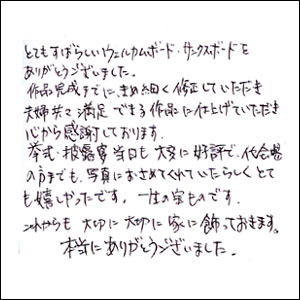 とてもすばらしいウェルカムボード・サンクスボードを
ありがとうございました。
作品完成までに、きめ細く修正していただき
夫婦共々満足できる作品に仕上げていただき
心から感謝しております。
挙式・披露宴当日も大変に好評で、他会場
の方までも、写真におさめてくれていたらしくとて
も嬉しかったです。一生の宝ものです。
これからも大切に大切に家に飾っておきます。
本当にありがとうございました。